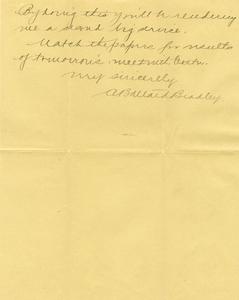 By doing this you'll be rendering
me a grand big service.
Watch the papers for results
of tomorrow's meet with
Very sincerely
A Ballard Bradley